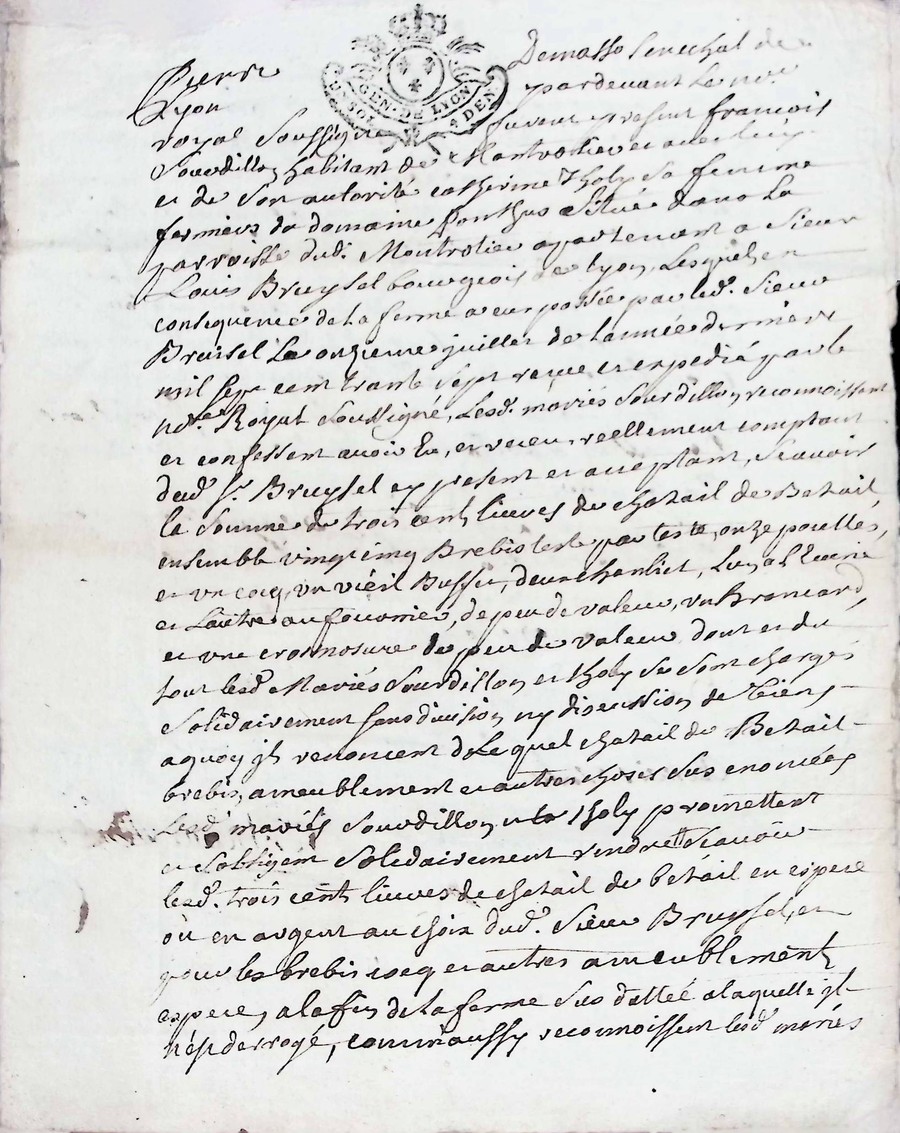 Pierre Demasso Senechal de
Lyon pardevant Le nore
royal Soussigné furent present francois
Sourdillon habitant de Montrotier et avec luy
et de Son autorité catherine Tholy Sa femme
fermiers du domaine Ponthus Situé dans La
parroisse dud. Montrotier appartenant a Sieur
Louis Bruysel bourgeois de Lyon, Lesquels en
consequence de la ferme a eux passée par led. Sieur
Bruisel Le onzieme juillet de Lannée derniere
mil sept cent trante sept receue et expedié par le
nore Royal Soussigné, Lesd. mariés Sourdillon reconnoissent
et confessent avoir Eu, et receu, reellement comptant
dud Sr. Bruysel cy present et acceptant, Scavoir
la Somme de trois cent livres de chetail de Betail,
ensemble vingt cinq Brebis teste par teste, onze poulles,
et un cocq, un vieil Buffet, deux chanlict, Lun a L'Ecurie
et Lautre au fournier, de peu de valeur, un Brancard,
et une de peu de valeur dont et du
tout lesd. Mariés Sourdillon et tholy se sont chargés
Solidairement sans division ny discussion de tiers
aquoy ils renoncent Lequel chetail de Betail
brebis, ameublement et autres choses sus enoncées
Lesd. mariés Sourdillon et Tholy promettent
et Sobligent Solidairement rendre Scavoir
lesd. trois cent livres de chetail de betail en espece
ou en argent au choix dud. Sieur Bruysel, et
pour les brebis cocq et autres ameublements
espece, a la fin de la ferme Sus dattée a laquelle il
n'est derrogé, comm'aussy reconnoissent lesd. mariés